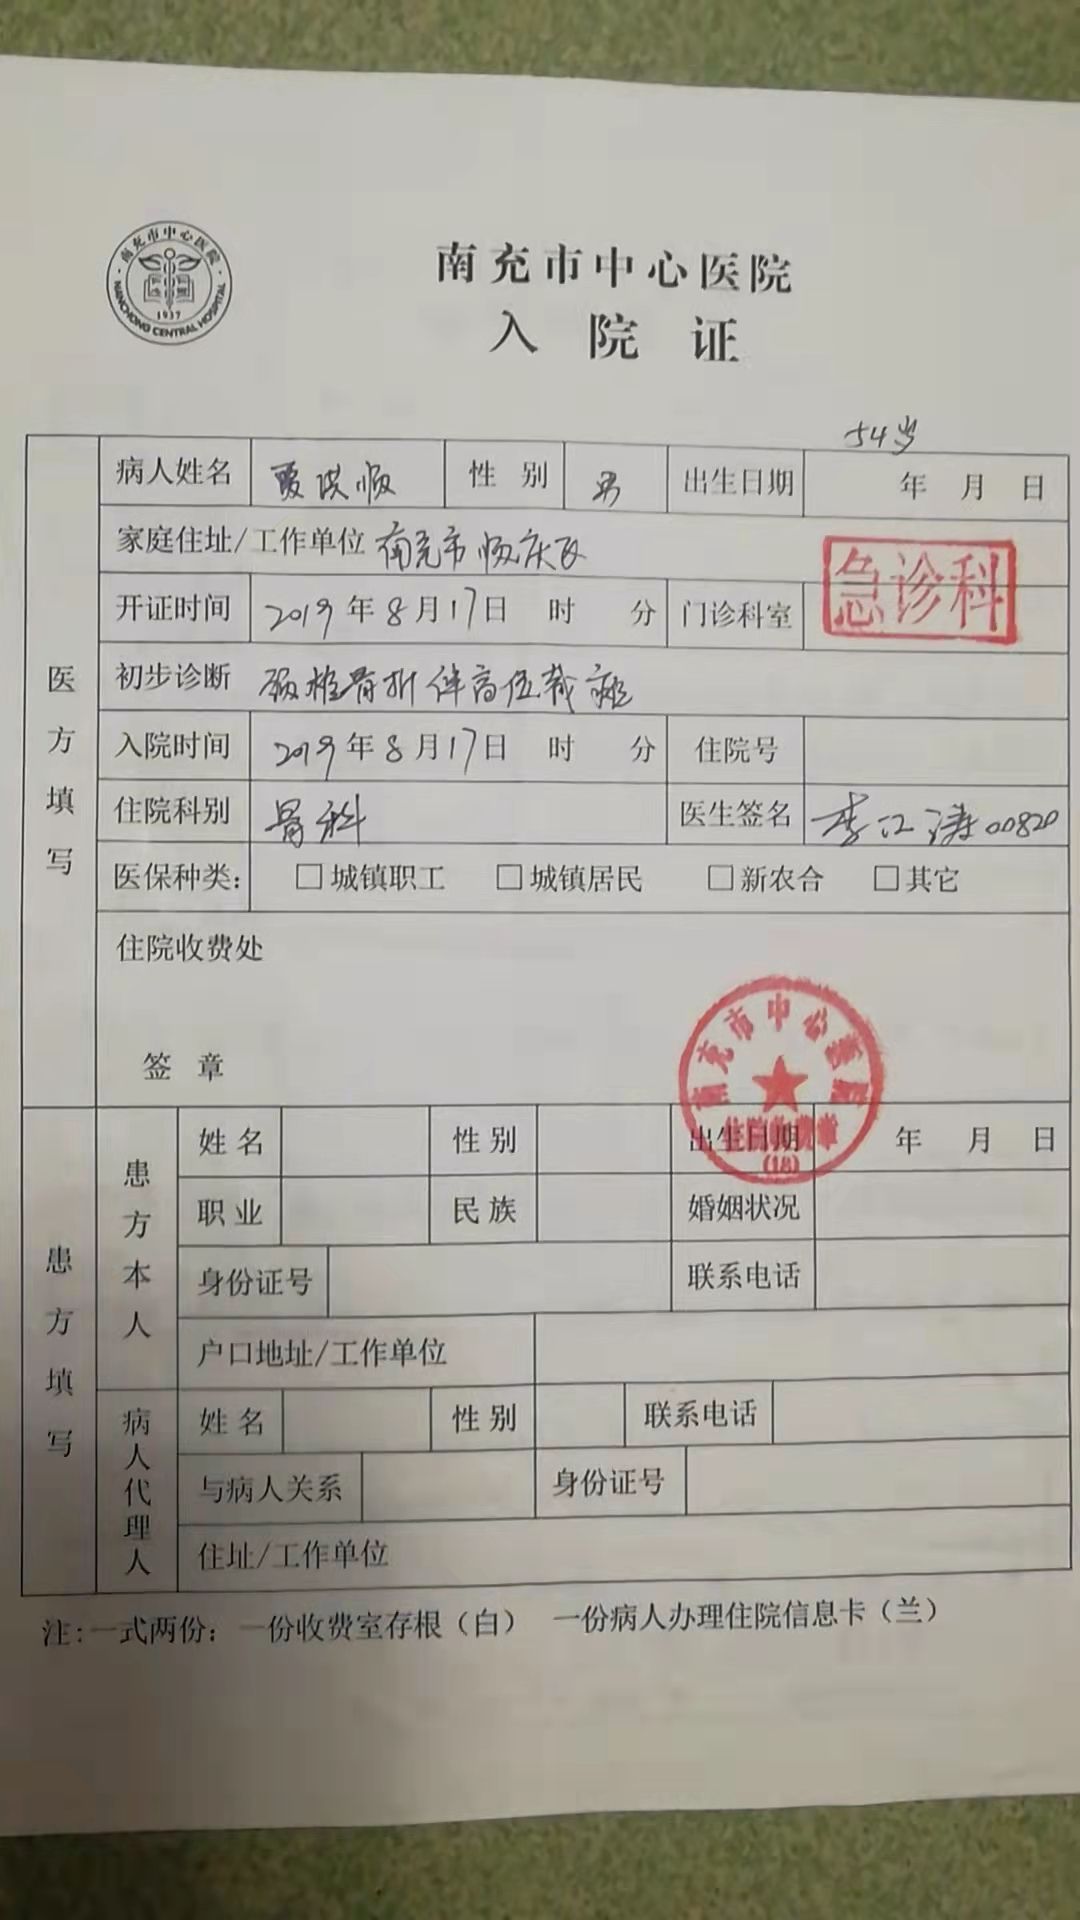 南充市中心医院
NANCHONG CENTRAL HOSPITAL
1937
南充市中心医院
入院证
54岁
医方填写
病人姓名 贾洪顺 性别 男 出生日期 年 月 日
家庭住址/工作单位 南充市顺庆区
急诊科
开证时间 2019年8月17日 时 分 门诊科室
初步诊断 颈椎骨折伴高位截瘫
入院时间 2019年8月17日 时 分 住院号
住院科别 骨科 医生签名 李江涛00820
医保种类: □城镇职工 □城镇居民 □新农合 □其它
住院收费处
签章
南充市中心医院
(18)
患方填写
患方本人
姓名 性别 出生日期 年 月 日
职业 民族 婚姻状况
身份证号 联系电话
户口地址/工作单位
病人代理人
姓名 性别 联系电话
与病人关系 身份证号
住址/工作单位
注:一式两份:一份收费室存根(白) 一份病人办理住院信息卡(兰)